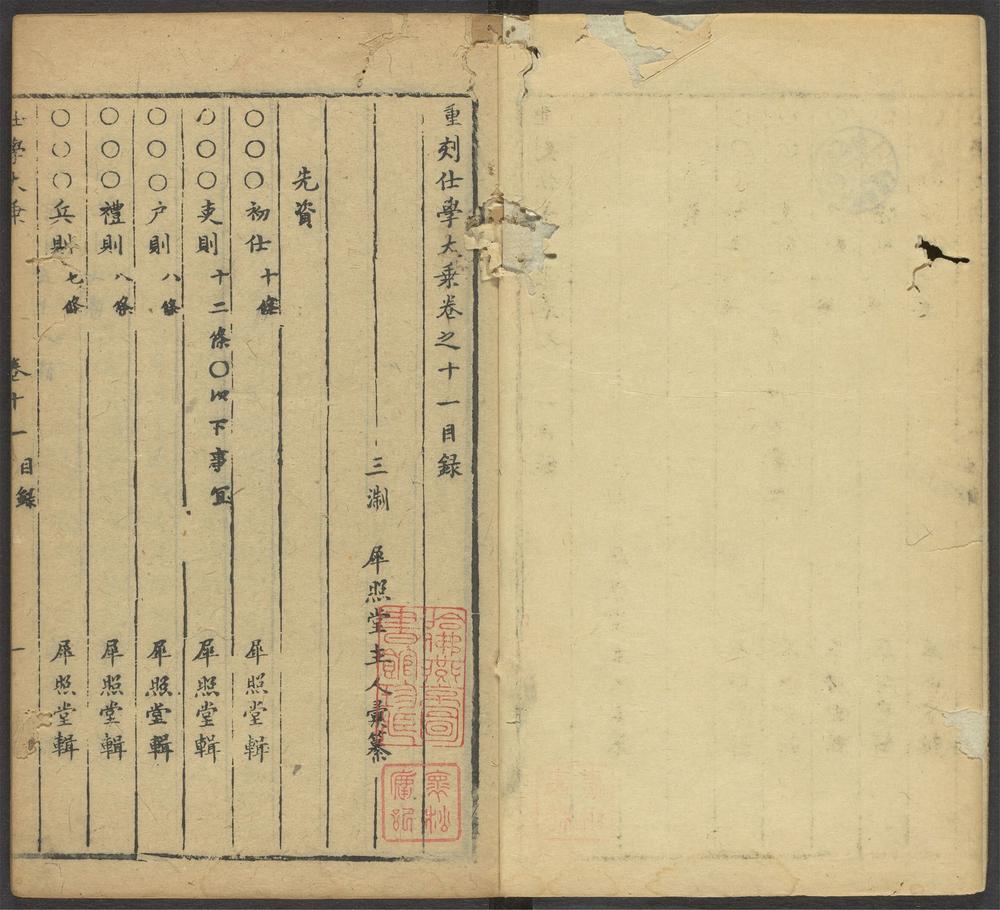 重刻仕學大乘卷之十一目録
三渊 犀照堂主人彙纂
先資
〇〇〇初仕 十條 犀照堂輯
〇〇〇吏則 十二條〇以下事宜 犀照堂輯
〇〇〇户則 八條 犀照堂輯
〇〇〇禮則 八條 犀照堂輯
〇〇〇兵則 七條 犀照堂輯
仕學大乘 卷十一 目録 一
哈佛燕京圖書館珍藏